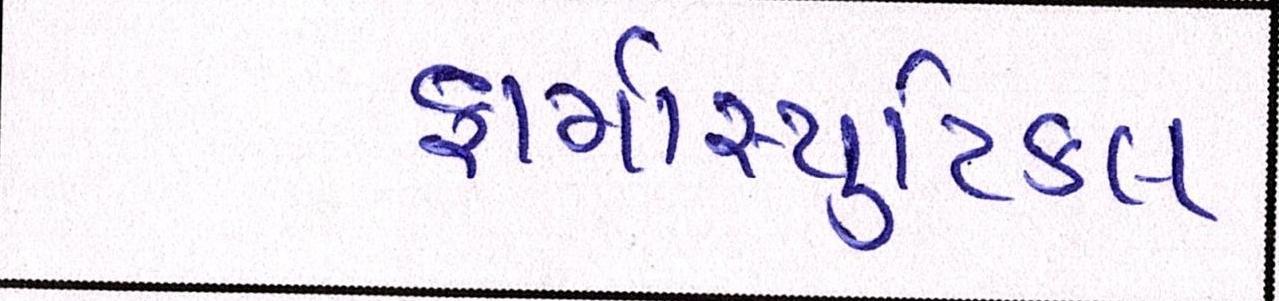 ફાર્માસ્યુટિકલ